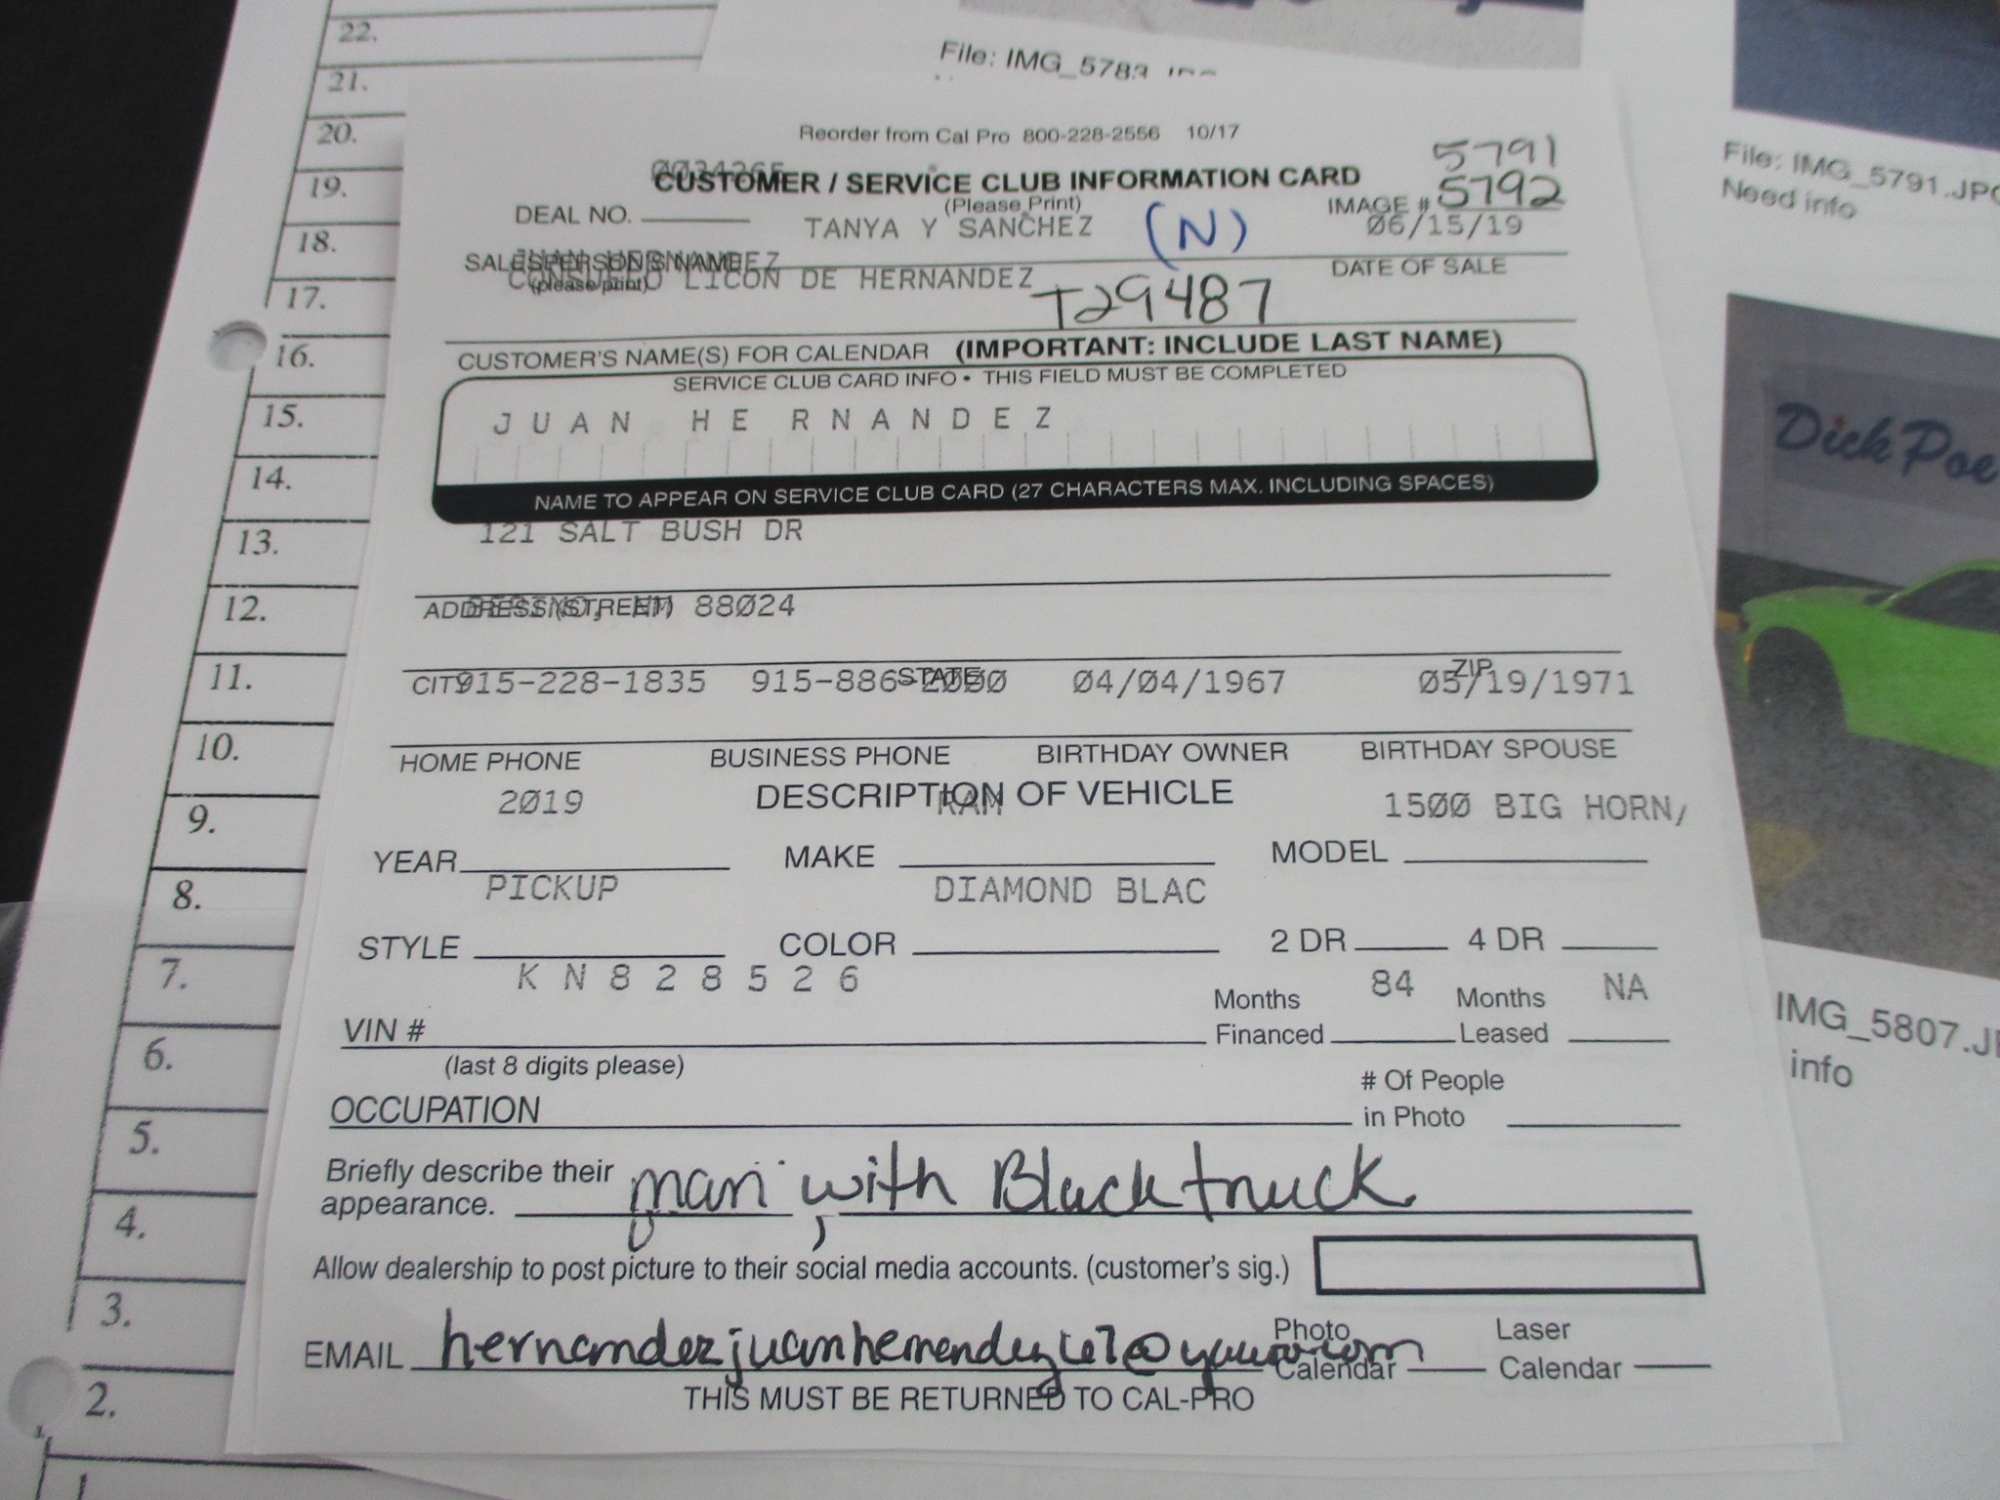 22.
21.
20.
19.
18.
17.
16.
15.
14.
13.
12.
11.
10.
9.
8.
7.
6.
5.
4.
3.
2.
File: IMG_5783
Reorder from Cal Pro 800-228-2556 10/17
5791
CUSTOMER / SERVICE CLUB INFORMATION CARD
(Please Print)
IMAGE # 5792
DEAL NO.
TANYA Y SANCHEZ (N) 06/15/19
SALESPERSON'S NAME
(please print)
DATE OF SALE
LICON DE HERNANDEZ T29487
CUSTOMER'S NAME(S) FOR CALENDAR (IMPORTANT: INCLUDE LAST NAME)
SERVICE CLUB CARD INFO • THIS FIELD MUST BE COMPLETED
JUAN HERNANDEZ
NAME TO APPEAR ON SERVICE CLUB CARD (27 CHARACTERS MAX. INCLUDING SPACES)
121 SALT BUSH DR
ADDRESS (STREET) 88024
CITY STATE ZIP
915-228-1835 915-886- 04/04/1967 05/19/1971
HOME PHONE BUSINESS PHONE BIRTHDAY OWNER BIRTHDAY SPOUSE
DESCRIPTION OF VEHICLE
2019 RAM 1500 BIG HORN/
YEAR MAKE MODEL
PICKUP DIAMOND BLAC
STYLE COLOR 2 DR 4 DR
KN828526
VIN #
(last 8 digits please)
Months Financed 84 Months Leased NA
OCCUPATION
# Of People in Photo
Briefly describe their
appearance. man, with Black truck
Allow dealership to post picture to their social media accounts. (customer's sig.)
EMAIL
Photo Calendar Laser Calendar
THIS MUST BE RETURNED TO CAL-PRO
File: IMG_5791.JPG
Need info
Dick Poe
IMG_5807.J
info